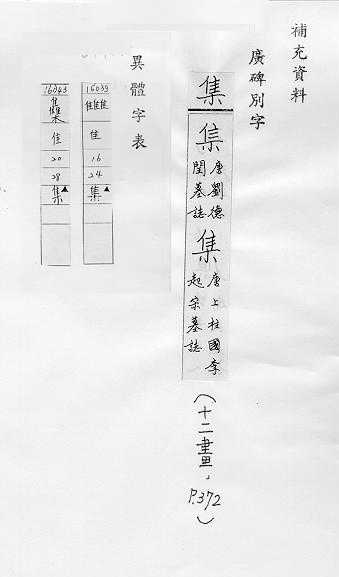 補充資料
廣碑別字
集
集 唐劉德
閏墓誌
集 唐上柱國李
起宗墓誌
(十二畫，P.372)
異體字表
16039
雥
隹
16
24
集▲
16043
雧
隹
20
28
集▲